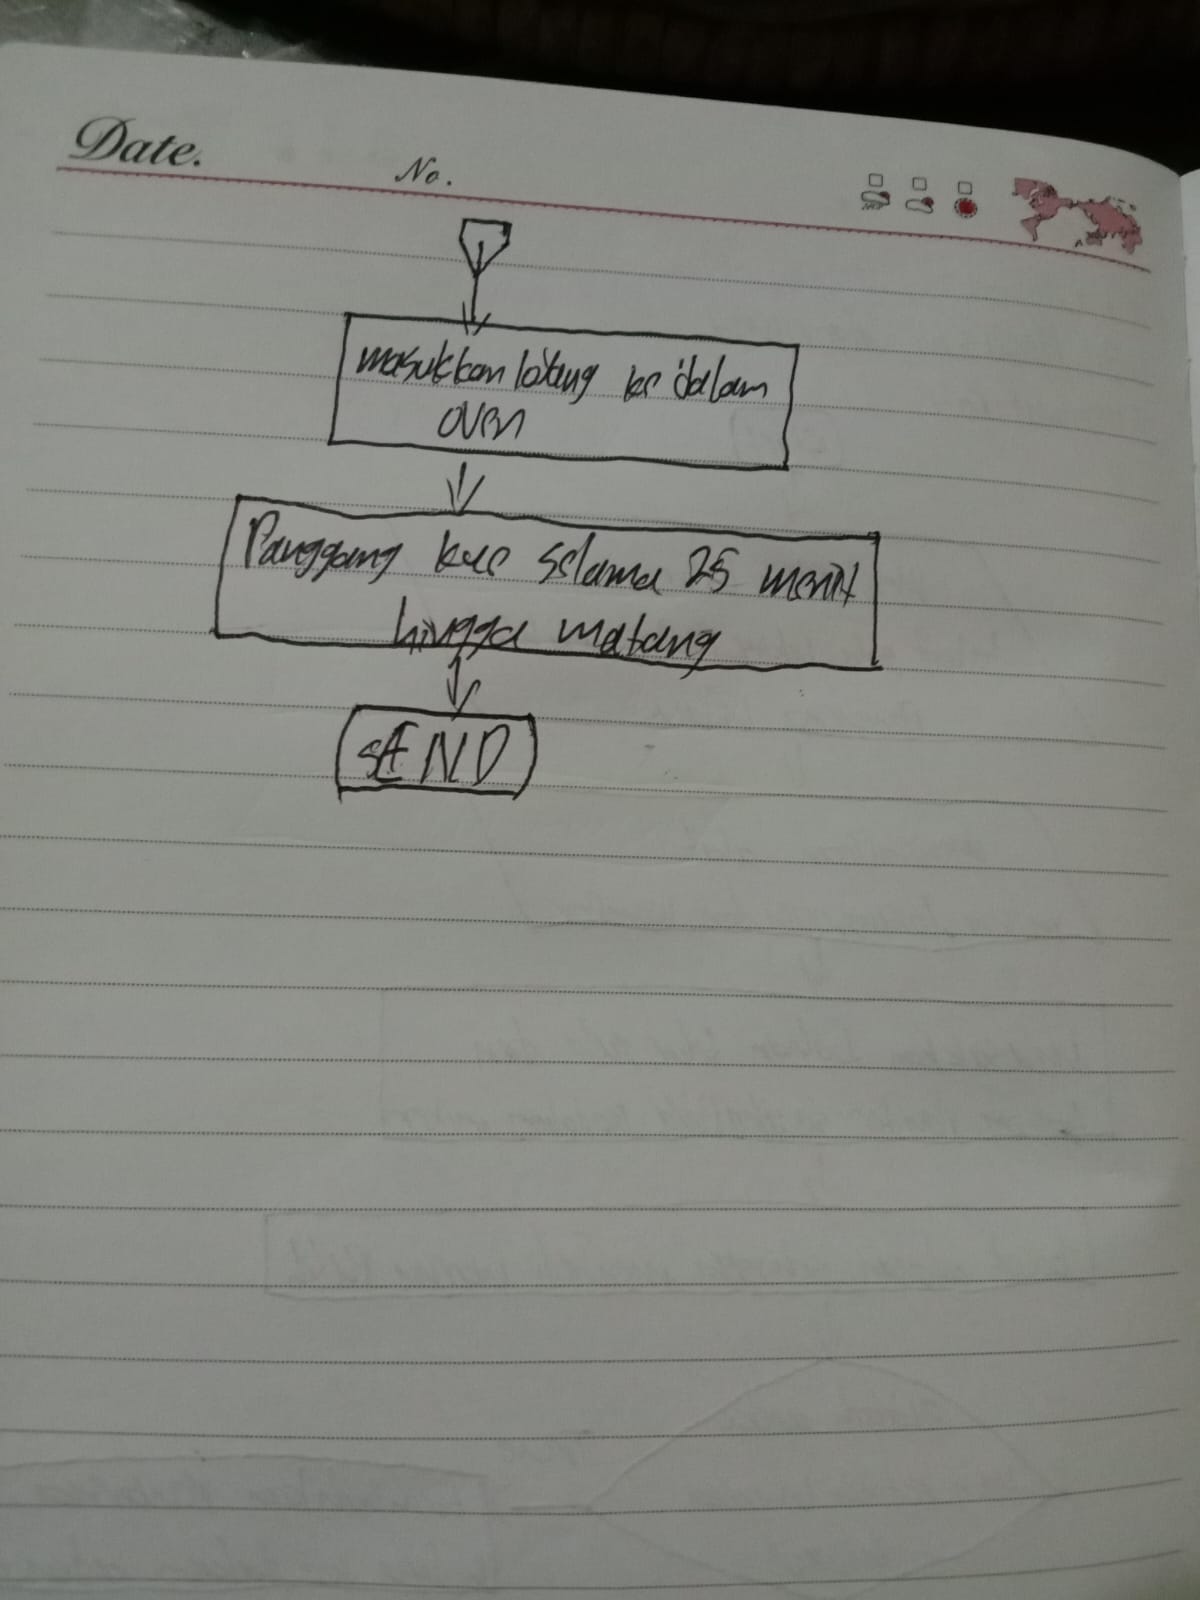 Date.
No.
masukkan loyang ke dalam
oven
Panggang kue selama 25 menit
hingga matang
END